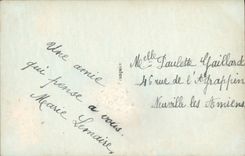 Une amie
qui pense a vous.
Marie Lemaire,
Melle Paulette Gaillard
46 rue de l'Agrappin
Neuville les Amiens